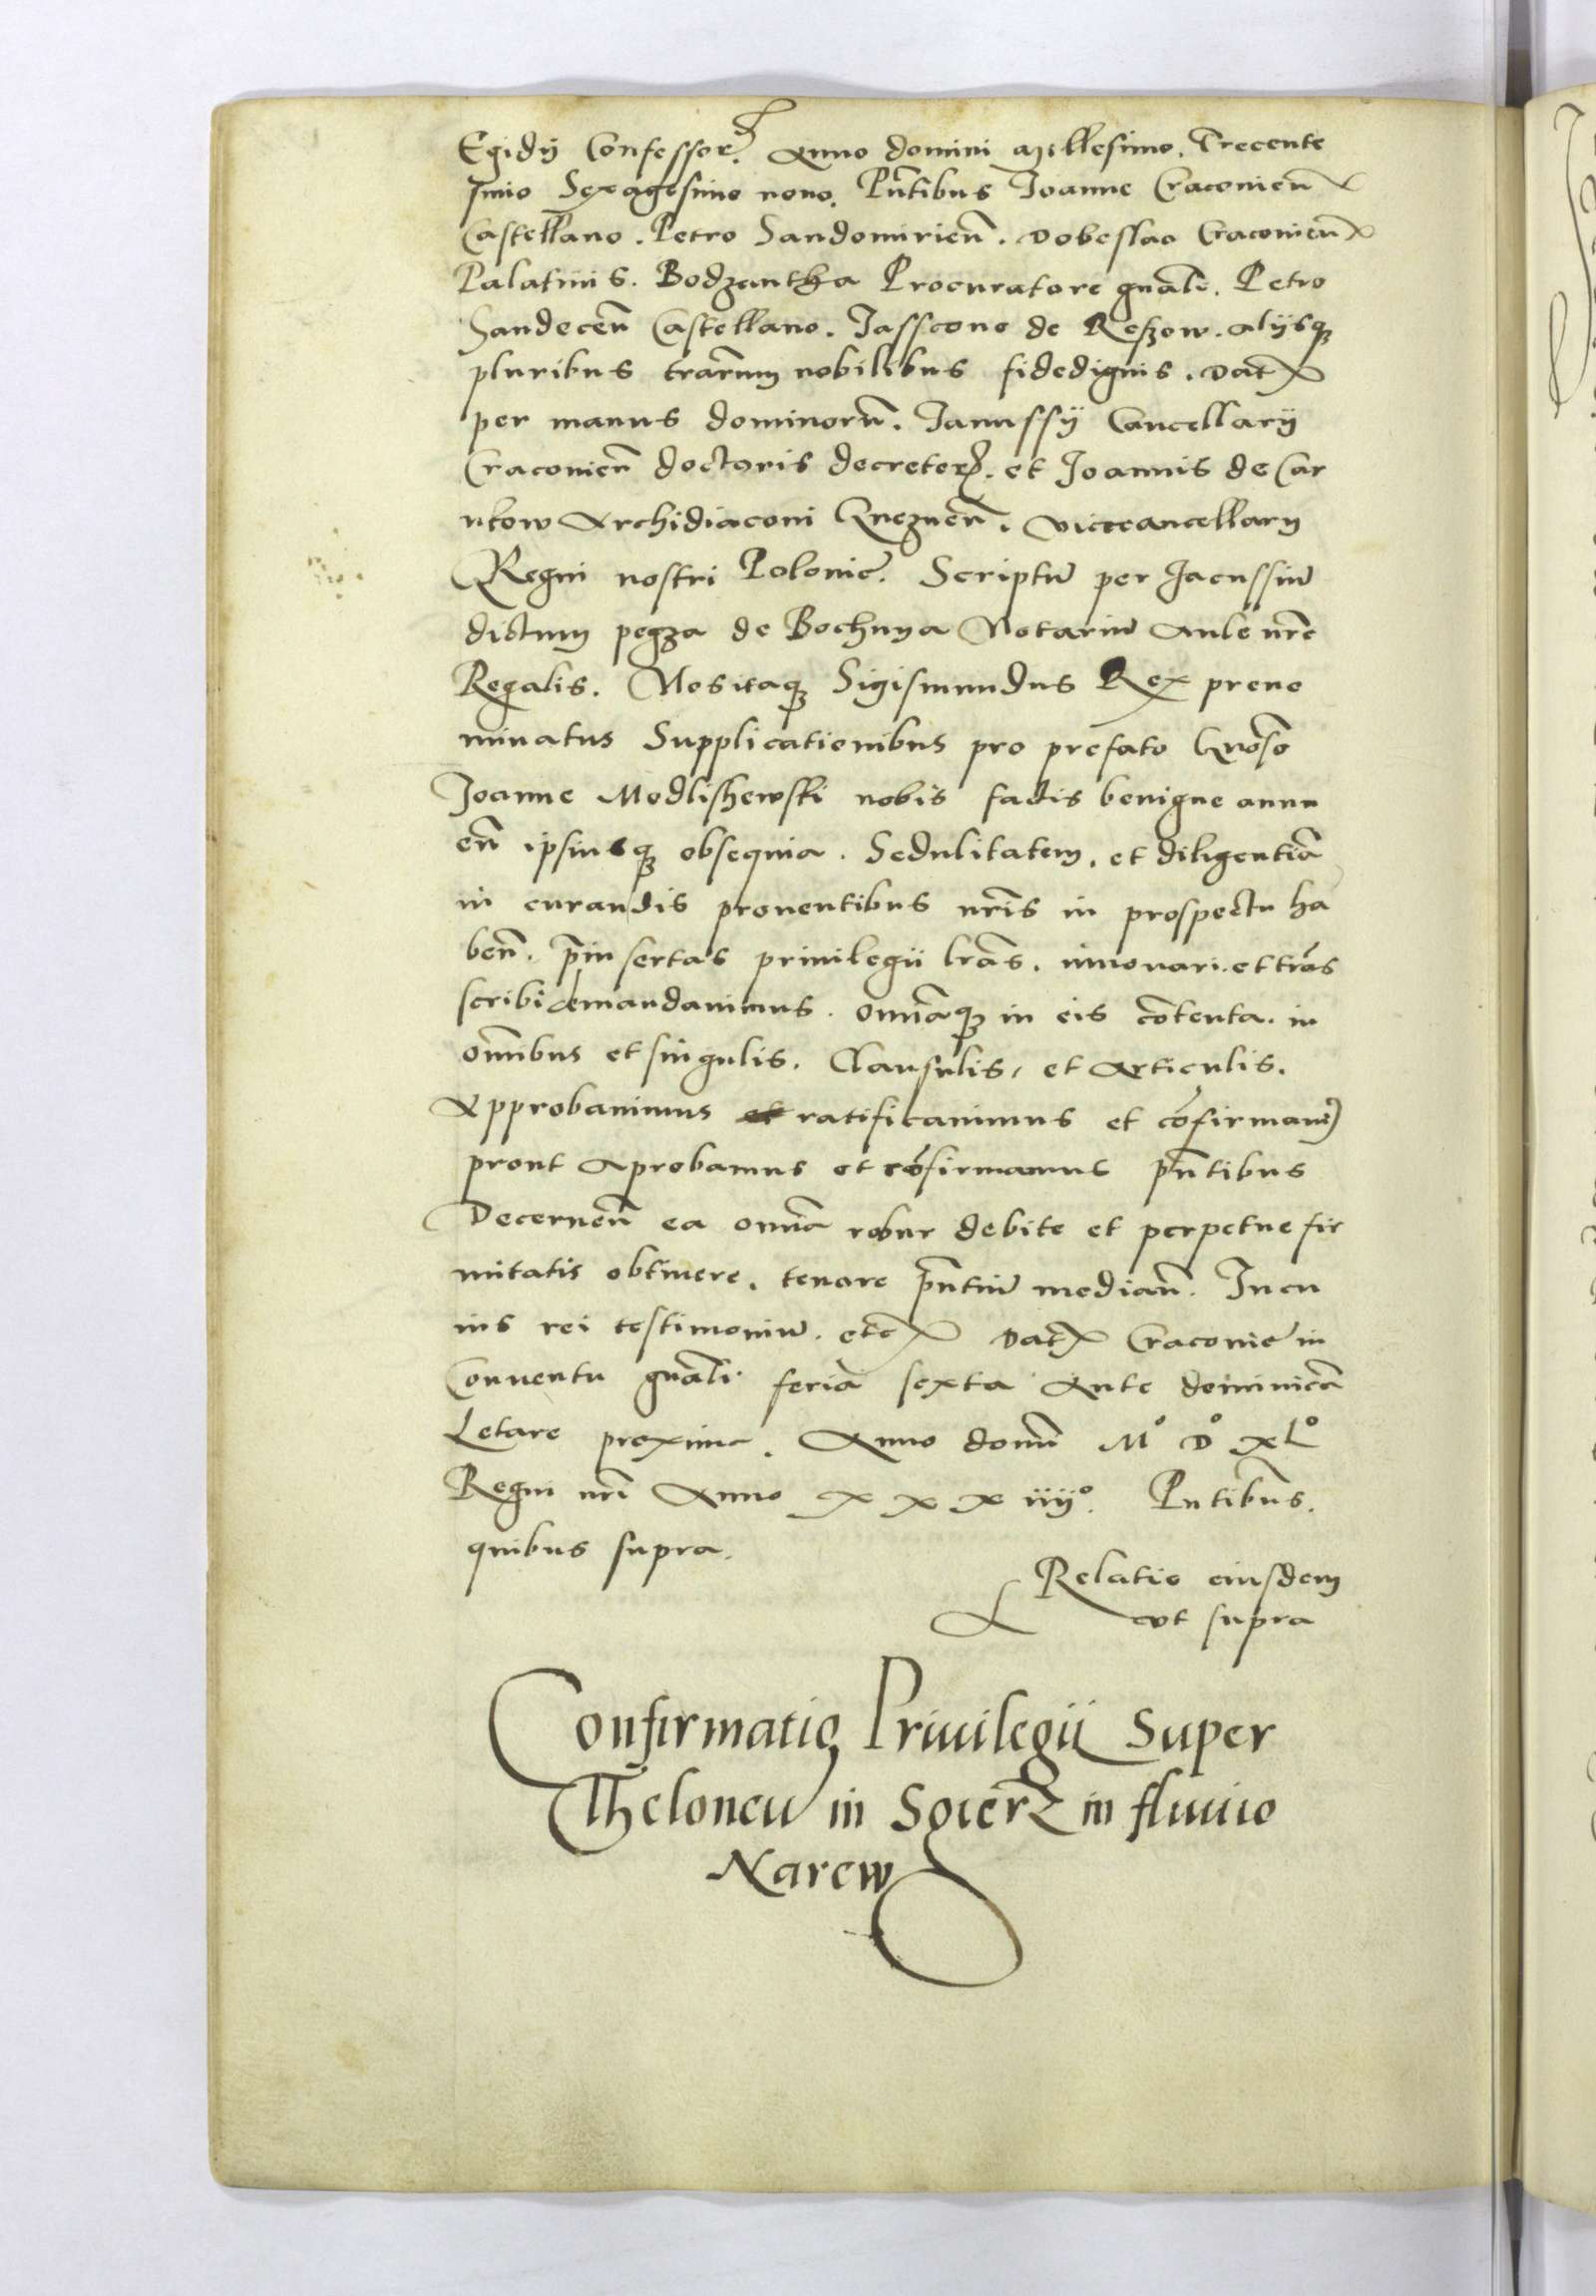 Egidij Confessor̃. Anno domini Millesimo. Trecente
simo Sexagesimo nono. Pñtibus Joanne Cracovieñ
Castellano. Petro Sandomirieñ. Dobeslao Cracovieñ
Palatinis. Bodzantha Procuratore gñali. Petro
Sandeceñ Castellano. Jasscono de Reszow. alijsq
pluribus trarum nobilibus fidedignis. Dat
per manus dominorũ. Janussij Cancellarij
Cracovieñ doctoris decretor. et Joannis de Car
nkow Archidiaconi Gnezneñ. vicecancellarij
Regni nostri Polonie. Scriptũ per Jacussiũ
dictum pegza de Bochnya Notariũ Aule nr̃e
Regalis. Nos itaq Sigismundus Rex preno
minatus Supplicationibus pro prefato Gnõso
Joanne Modlishewski nobis factis benigne annu
eñ ipsiusq obsequia. Sedulitatem. et diligentiã
in curandis proventibus nr̃is in prospectu ha
beñ. p̃insertas privilegii lr̃as. innovari. et trãs
scribi demandavimus. omñaq in eis cõtenta. in
om̃ibus et singulis. Clausulis, et Articulis.
Approbavimus et ratificavimus et cõfirmavi
prout Aprobamus et cõfirmamus p̃ntibus
Decerneñ ea omñia robur debite et perpetue fir
mitatis obtinere. tenore p̃ntiũ mediañ. In cu
ius rei testimoniũ. etc Dat Cracovie in
Conventu gñali feria sexta Ante dominicã
Letare proxima. Anno domĩ M° D° XL°
Regni nr̃i Anno X X X iiij°. Pntibus.
quibus supra.
Relatio eiusdem
ut supra
Confirmatio Privilegii Super
Theloneũ in Sgierz in fluvio
Narew